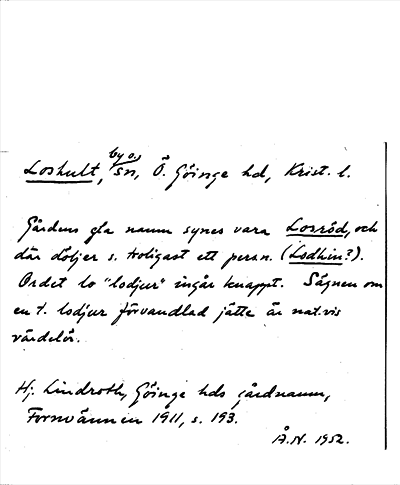 by o.
Loshult, sn, Ö. Göinge hd, Krist. l.
Gårdens gla namn synes vara Losröd, och
där döljer s. troligast ett persn. (Lodhin?).
Ordet lo "lodjur" ingår knappt. Sägnen om
en t. lodjur förvandlad jätte är nat.vis
värdelös.
Hj. Lindroth, Göinge hds gårdnamn,
Fornvännen 1911, s. 193.
Å.N. 1952.